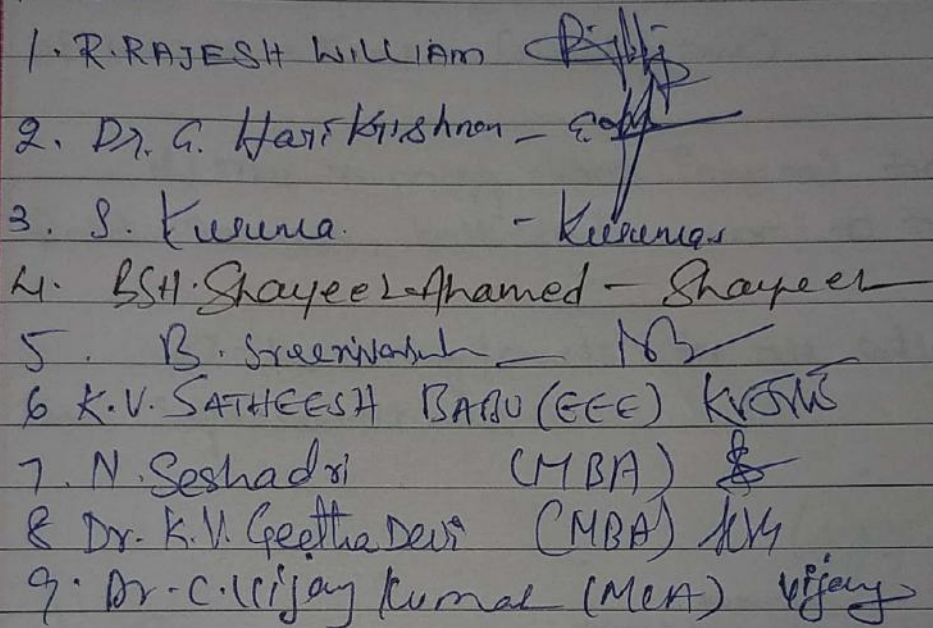 1. R. RAJESH WILLIAM
2. Dr. G. Hari Krishnan -
3. S. Kusuma. - Kusumas
4. BSH. Shayeel Ahamed - Shayeel
5. B. Sreenivasulu -
6 K.V. SATHEESH BABU (EEE)
7. N. Seshadri (MBA)
8 Dr. K.V. Geetha Devi (MBA)
9. Dr. C. Vijay Kumar (MCA) Vijay